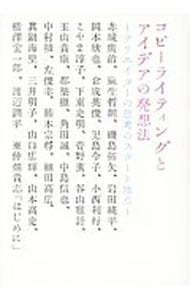 コピーライティングと
アイデアの発想法
―クリエイターの思考のスタート地点―
赤城廣治、麻生哲朗、磯島拓矢、岩田純平、
岡本欣也、倉成英俊、児島令子、小西利行、
こやま淳子、下東史明、菅野薫、谷山雅計、
玉山貴康、都築徹、角田誠、中島信也、
中村禎、左俊幸、藤本宗将、細田高広、
眞鍋海里、三井明子、山口広輝、山本高史、
横澤宏一郎、渡辺潤平 「はじめに」